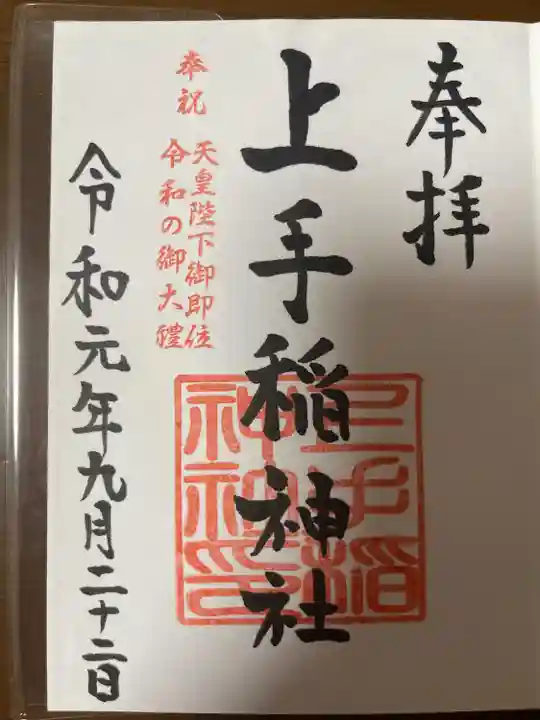 奉拝
上手稲神社
奉祝
天皇陛下御即位
令和の御大禮
上手稲
神社印
令和元年九月二十二日